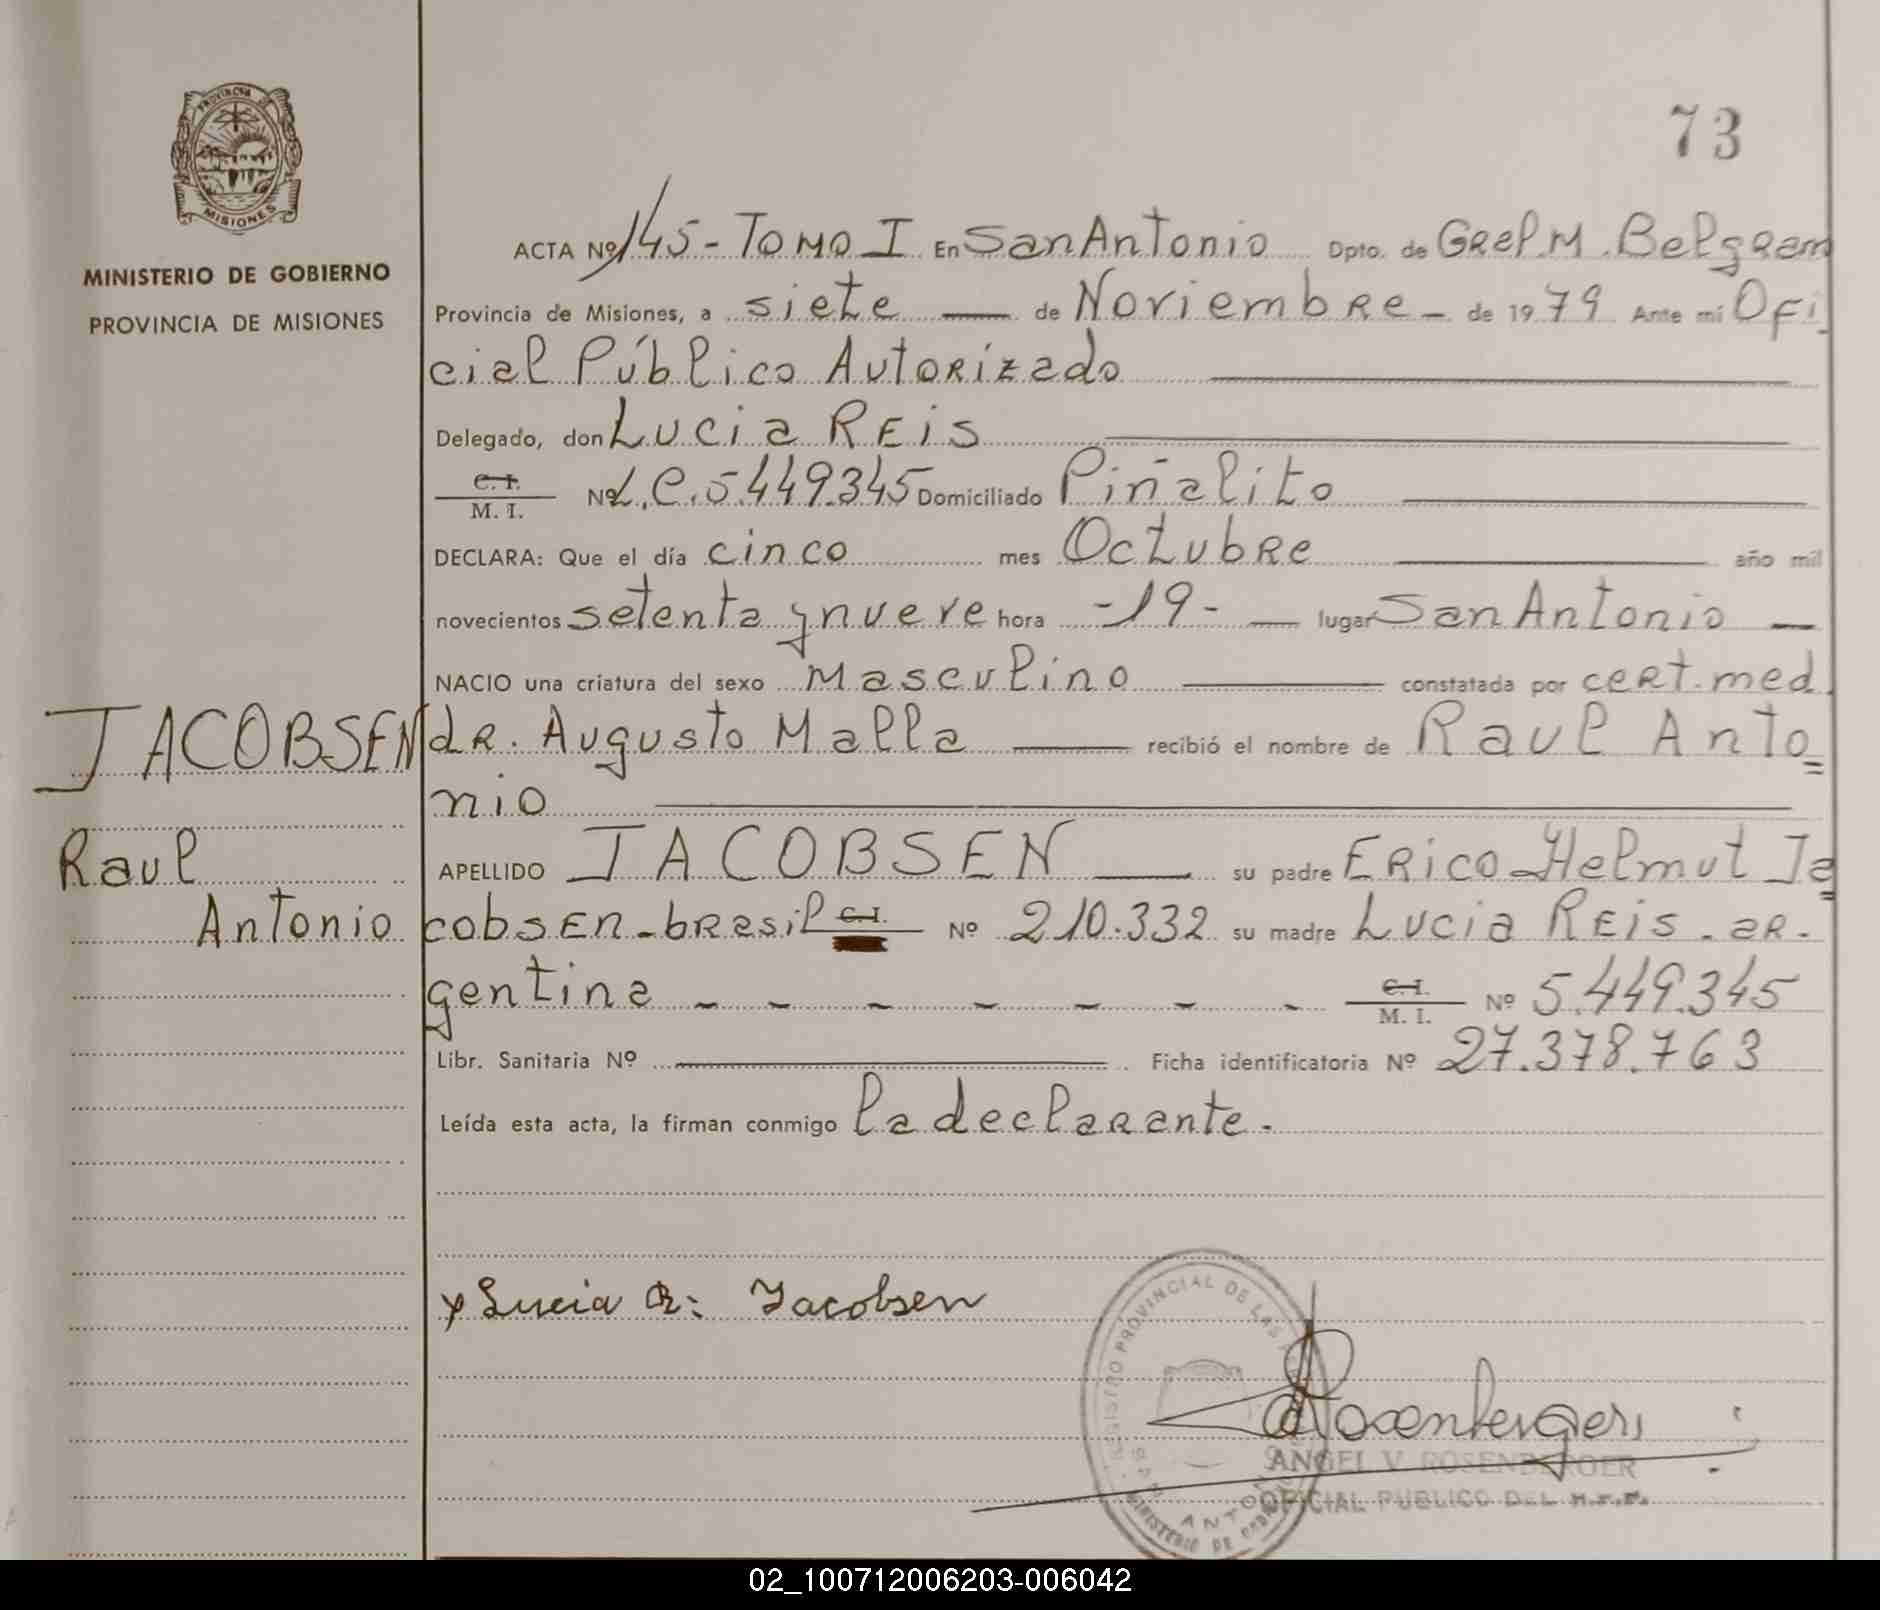 73
PROVINCIA DE
MISIONES
MINISTERIO DE GOBIERNO
PROVINCIA DE MISIONES
ACTA Nº 145 - TOMO I En San Antonio Dpto. de Gral. M. Belgrano
Provincia de Misiones, a siete — de Noviembre - de 1979 Ante mí Ofi
cial Público Autorizado
Delegado, don Lucia Reis
C. I.
M. I. Nº L.C. 5.449.345 Domiciliado Piñalito
DECLARA: Que el día cinco mes Octubre año mil
novecientos setenta y nueve hora -19- lugar San Antonio
NACIO una criatura del sexo Masculino constatada por cert. med.
JACOBSEN dr. Augusto Malla recibió el nombre de Raul Anto=
nio
Raul APELLIDO JACOBSEN su padre Erico Helmut Ja=
Antonio cobsen - brasil C. I. Nº 210.332 su madre Lucia Reis - ar-
gentina - - - - - - - C. I.
M. I. Nº 5.449.345
Libr. Sanitaria Nº Ficha identificatoria Nº 27.378.763
Leída esta acta, la firman conmigo la declarante.
x Lucia R: Jacobsen
REGISTRO PROVINCIAL DE LAS
SAN ANTONIO
MINISTERIO DE
Rosenberger
ANGEL V. ROSENBERGER
OFICIAL PUBLICO DEL
02_100712006203-006042